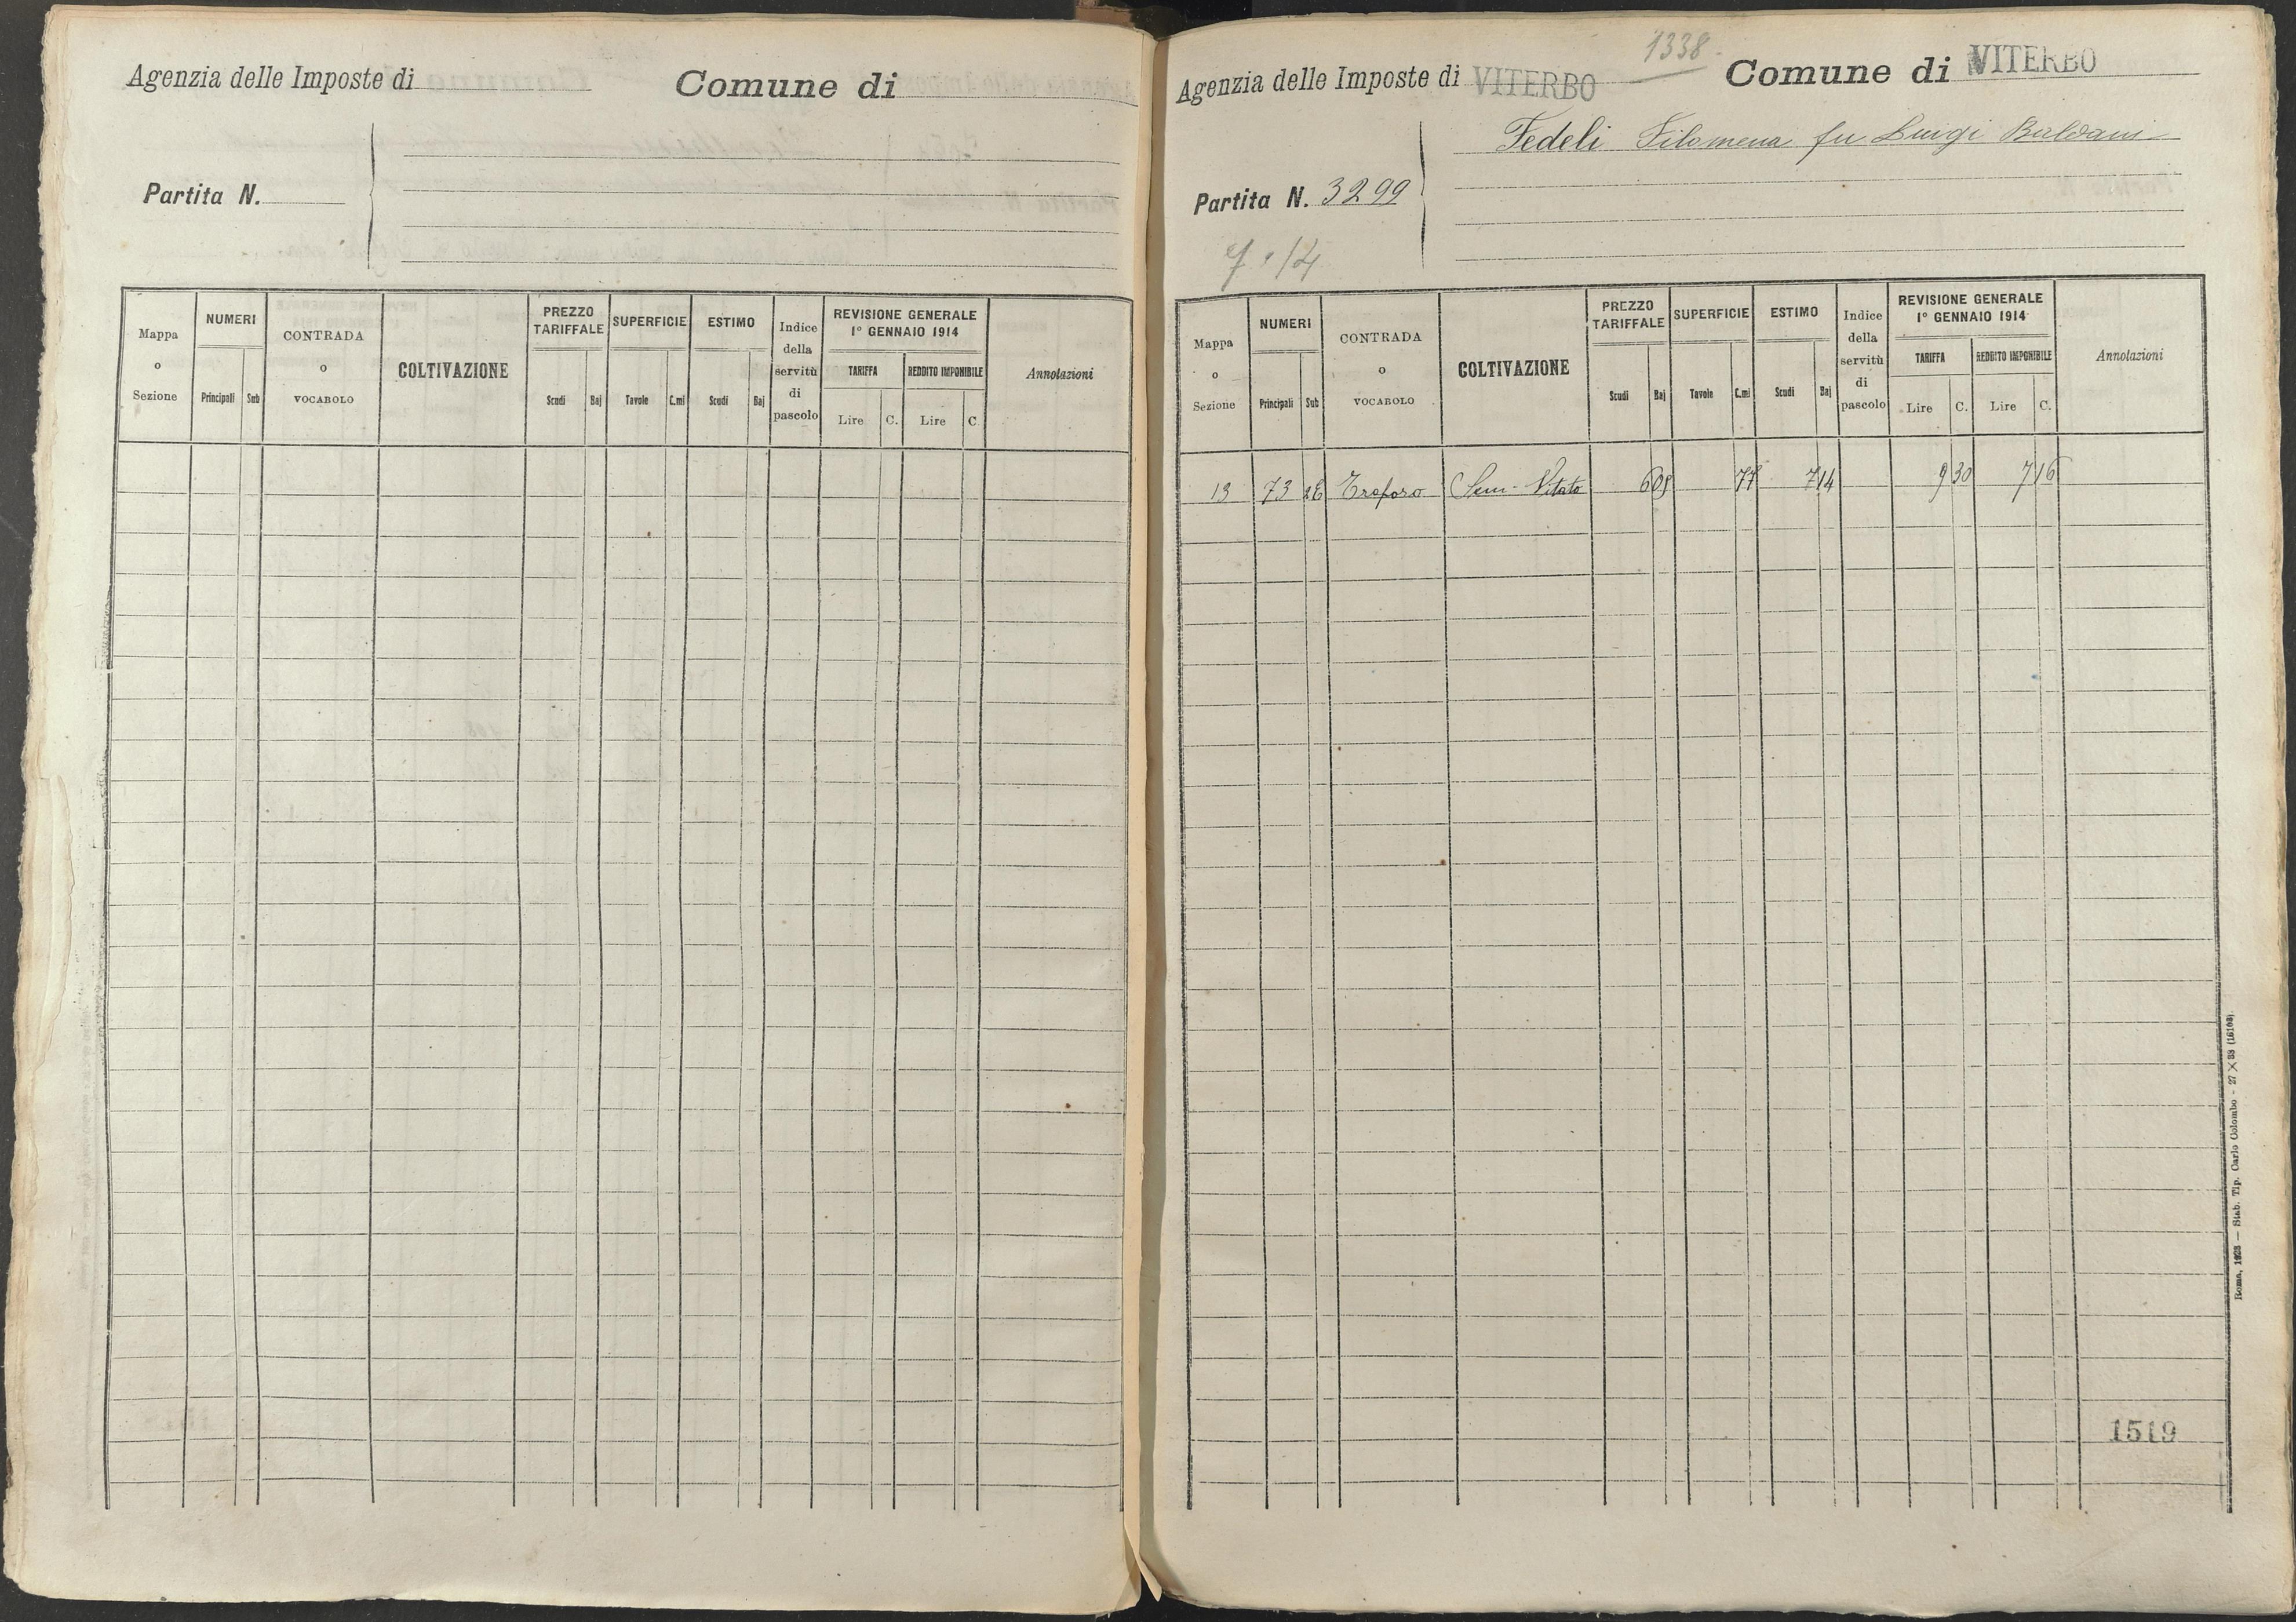 Agenzia delle Imposte di
Comune di
Partita N.
Mappa o Sezione
NUMERI
Principali
Sub
CONTRADA o VOCABOLO
COLTIVAZIONE
PREZZO TARIFFALE
Scudi
Baj
SUPERFICIE
Tavole
C.mi
ESTIMO
Scudi
Baj
Indice della servitù di pascolo
REVISIONE GENERALE
1° GENNAIO 1914
TARIFFA
Lire
C.
REDDITO IMPONIBILE
Lire
C
Annotazioni
1338
Agenzia delle Imposte di VITERBO
Comune di VITERBO
Fedeli Filomena fu Luigi
Partita N. 3299
Mappa o Sezione
NUMERI
Principali
Sub
CONTRADA o VOCABOLO
COLTIVAZIONE
PREZZO TARIFFALE
Scudi
Baj
SUPERFICIE
Tavole
C.mi
ESTIMO
Scudi
Baj
Indice della servitù di pascolo
REVISIONE GENERALE
1° GENNAIO 1914
TARIFFA
Lire
C.
REDDITO IMPONIBILE
Lire
C.
Annotazioni
13 73 Sem. Vitato 77 7 14 9 30 7 16
1519
Roma, 1923 — Stab. Tip. Carlo Colombo - 27 × 38 (16103)